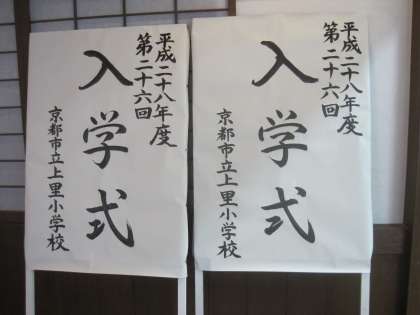 平成二十八年度
第二十六回
入学式
京都市立上里小学校
平成二十八年度
第二十六回
入学式
京都市立上里小学校